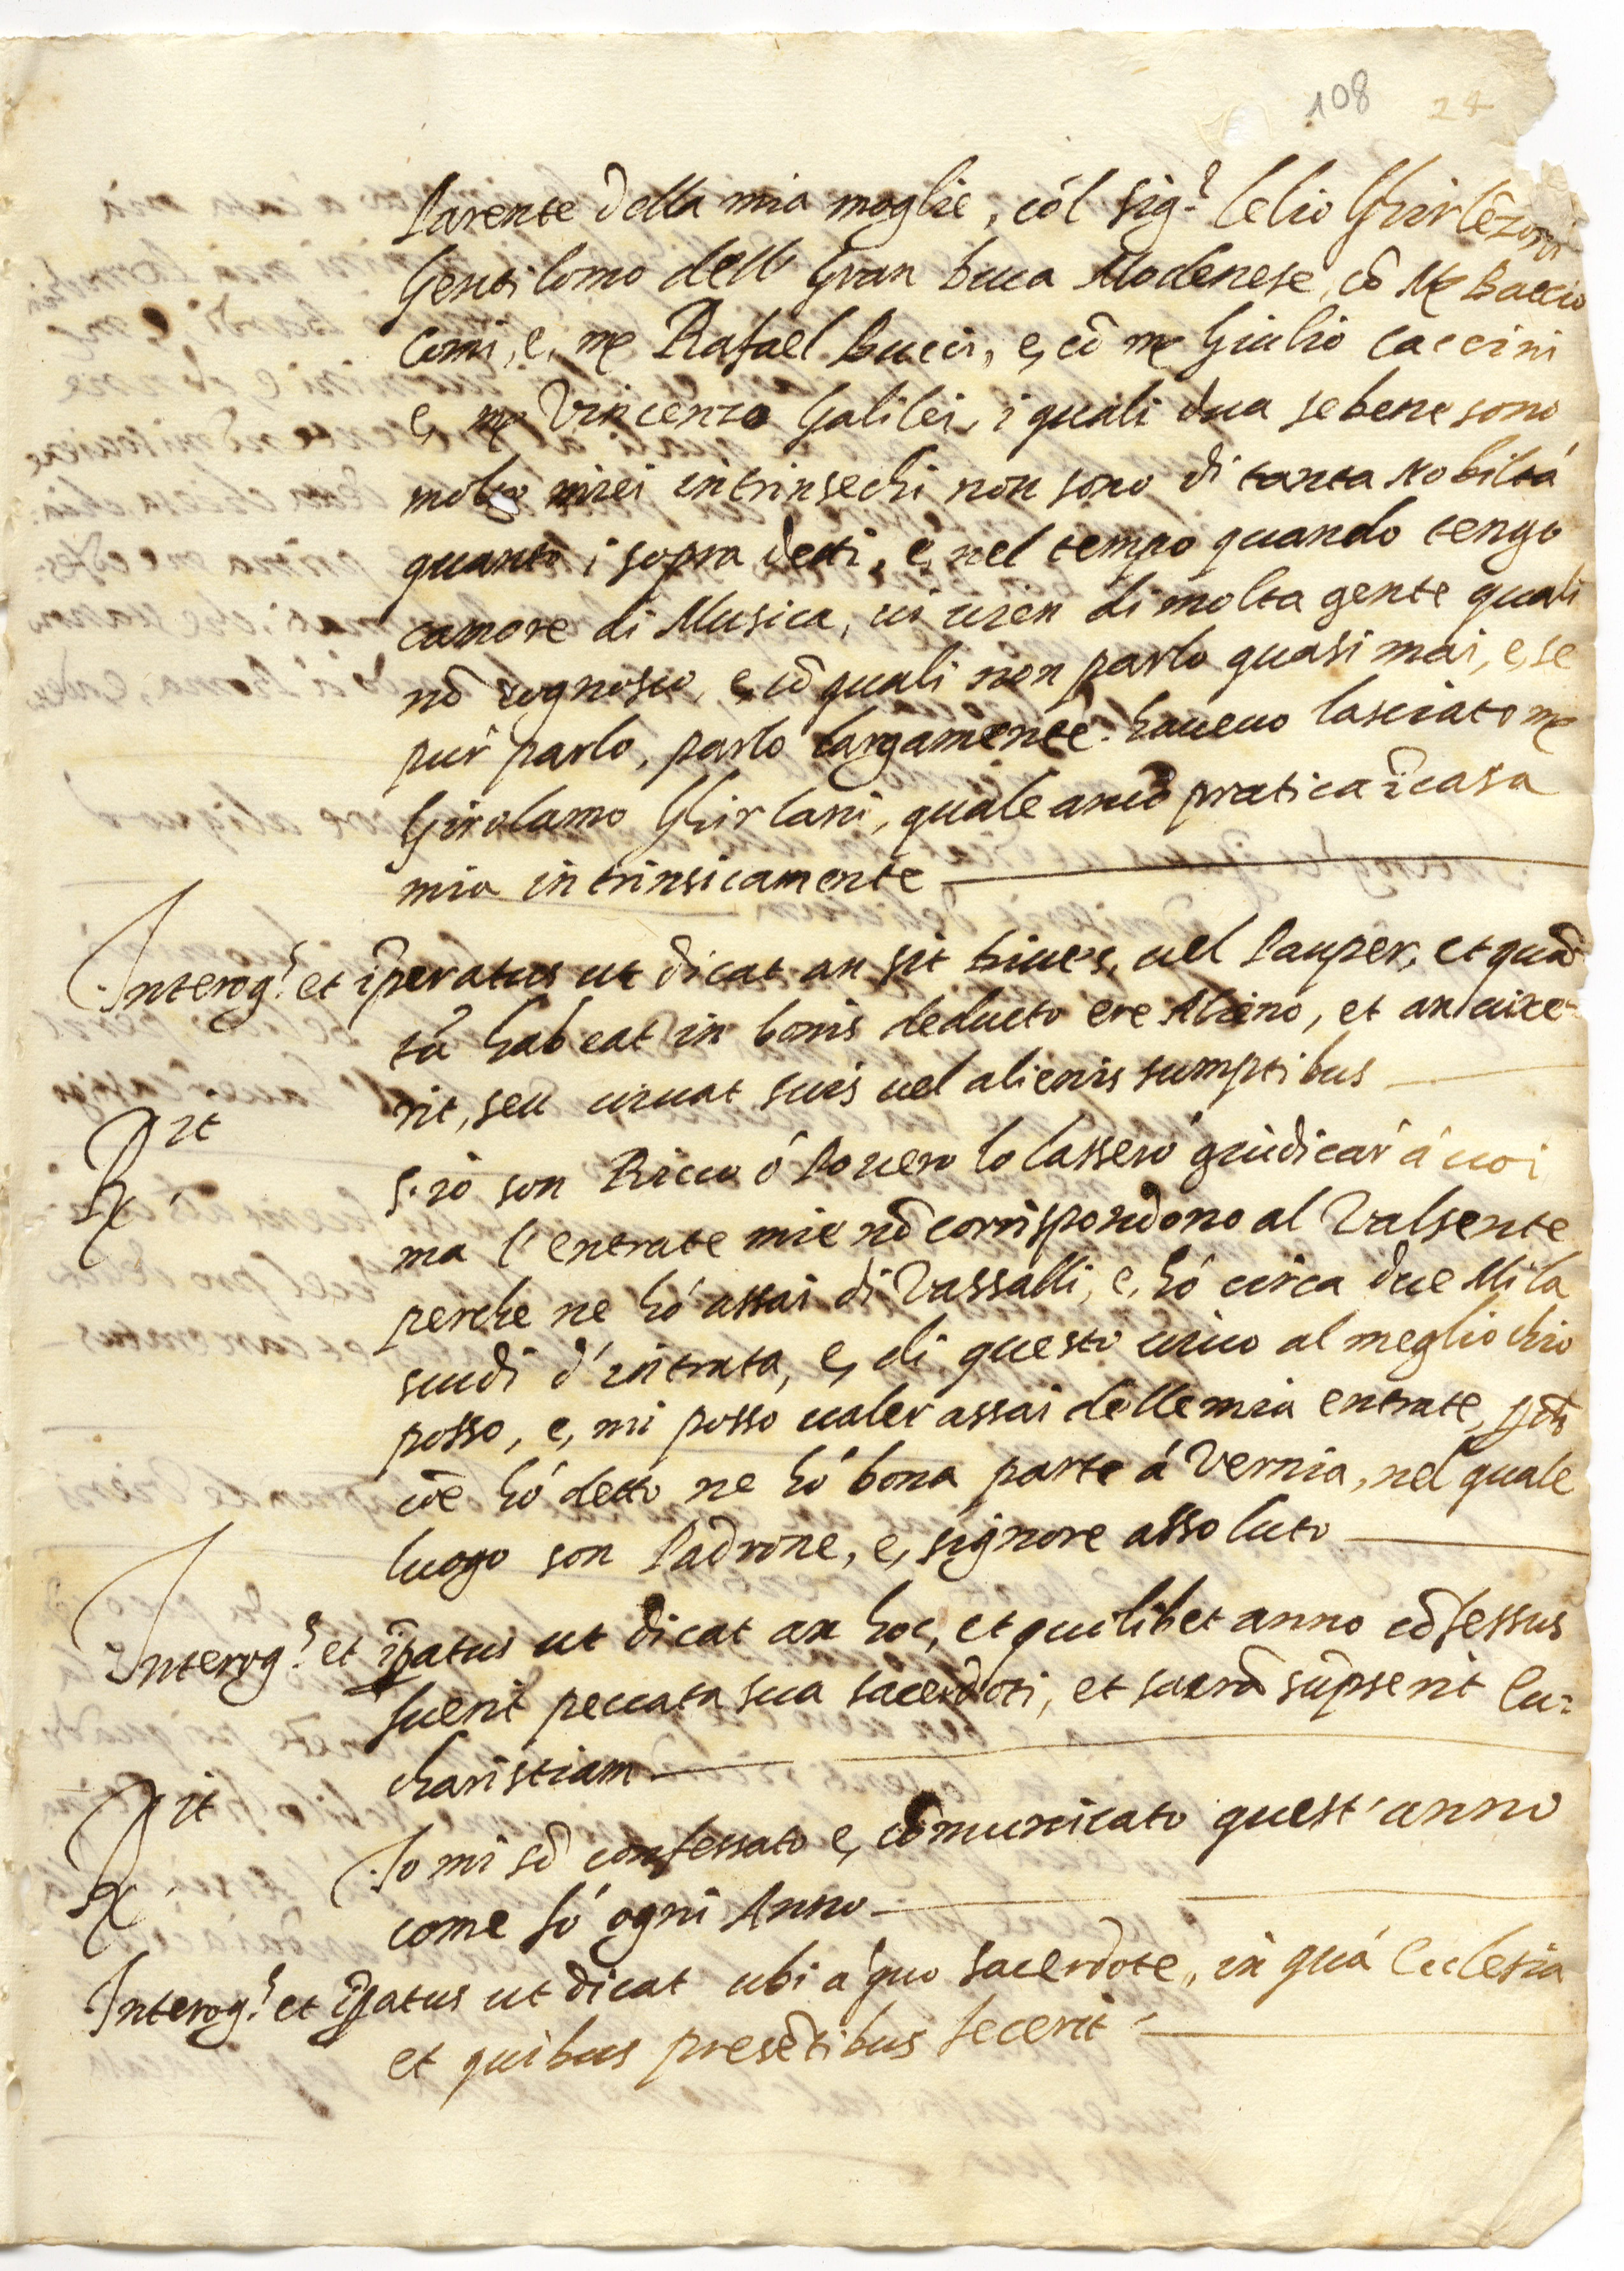 108 24
Parente della mia moglie, cól Sig.r Celio Ghirlẽzoni
Gentilomo dell Gran Duca Modenese, cõ Mẹ Baccio
Comi, e, mẹ Rafael Gucci, e, cõ mẹ Giulio Caccini
e, mẹ Vincenzo Galilei, i quali dua sebene sono
molto miei intrinsechi non sono di tanta Nobiltá
quanto i sopra detti, e, nel tempo quando tengo
camore di Musica, ui uien di molta gente quali
nõ cognosco, e, cõ quali non parlo quasi mai, e, se
pur parlo, parlo largamente. haueuo lasciato mẹ
Girolamo Ghirlani, quale anco pratica ĩ casa
mia intrinsicamente
Interog.s et ĩperatus ut dicat an sit Diues, uel Pauper, et quã
tũ habeat in bonis deducto ere Alieno, et an uixe-
rit, seu uiuat suis uel alienis sumptibus
Rx.it
S. io son Ricco ó Pouero lo lasseró giudicar á uoi
ma l'entrate mie nõ corrispondono al Valsente
perche ne hó assai di Vassalli, e, hó circa due Mila
scudi d'intrata, e, di questo uiuo al meglio chio
posso, e, mi posso ualer assai delle mia entrate, pch
cõe hó detto ne hó bona parte á Vernia, nel quale
luogo son Padrone, e, signore assoluto
Interog.s et ĩpatus ut dicat an hoc, et quilibet anno cõfessus
fuerit peccata sua sacerdoti, et sacrã sũpserit Eu=
charistiam
Rx.it
Io mi sõ confessato e, cõmunicato quest'anno
come fó ogni Anno
Interog.s et ĩpatus ut dicat ubi a quo sacerdote, in quá Ecclesia
et quibus presẽtibus fecerit